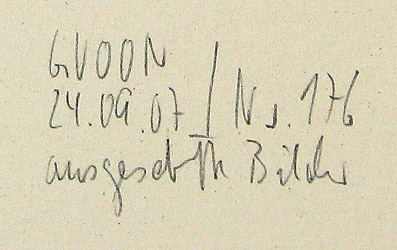 GVOON
24.09.07 / Nr. 176
Bilder